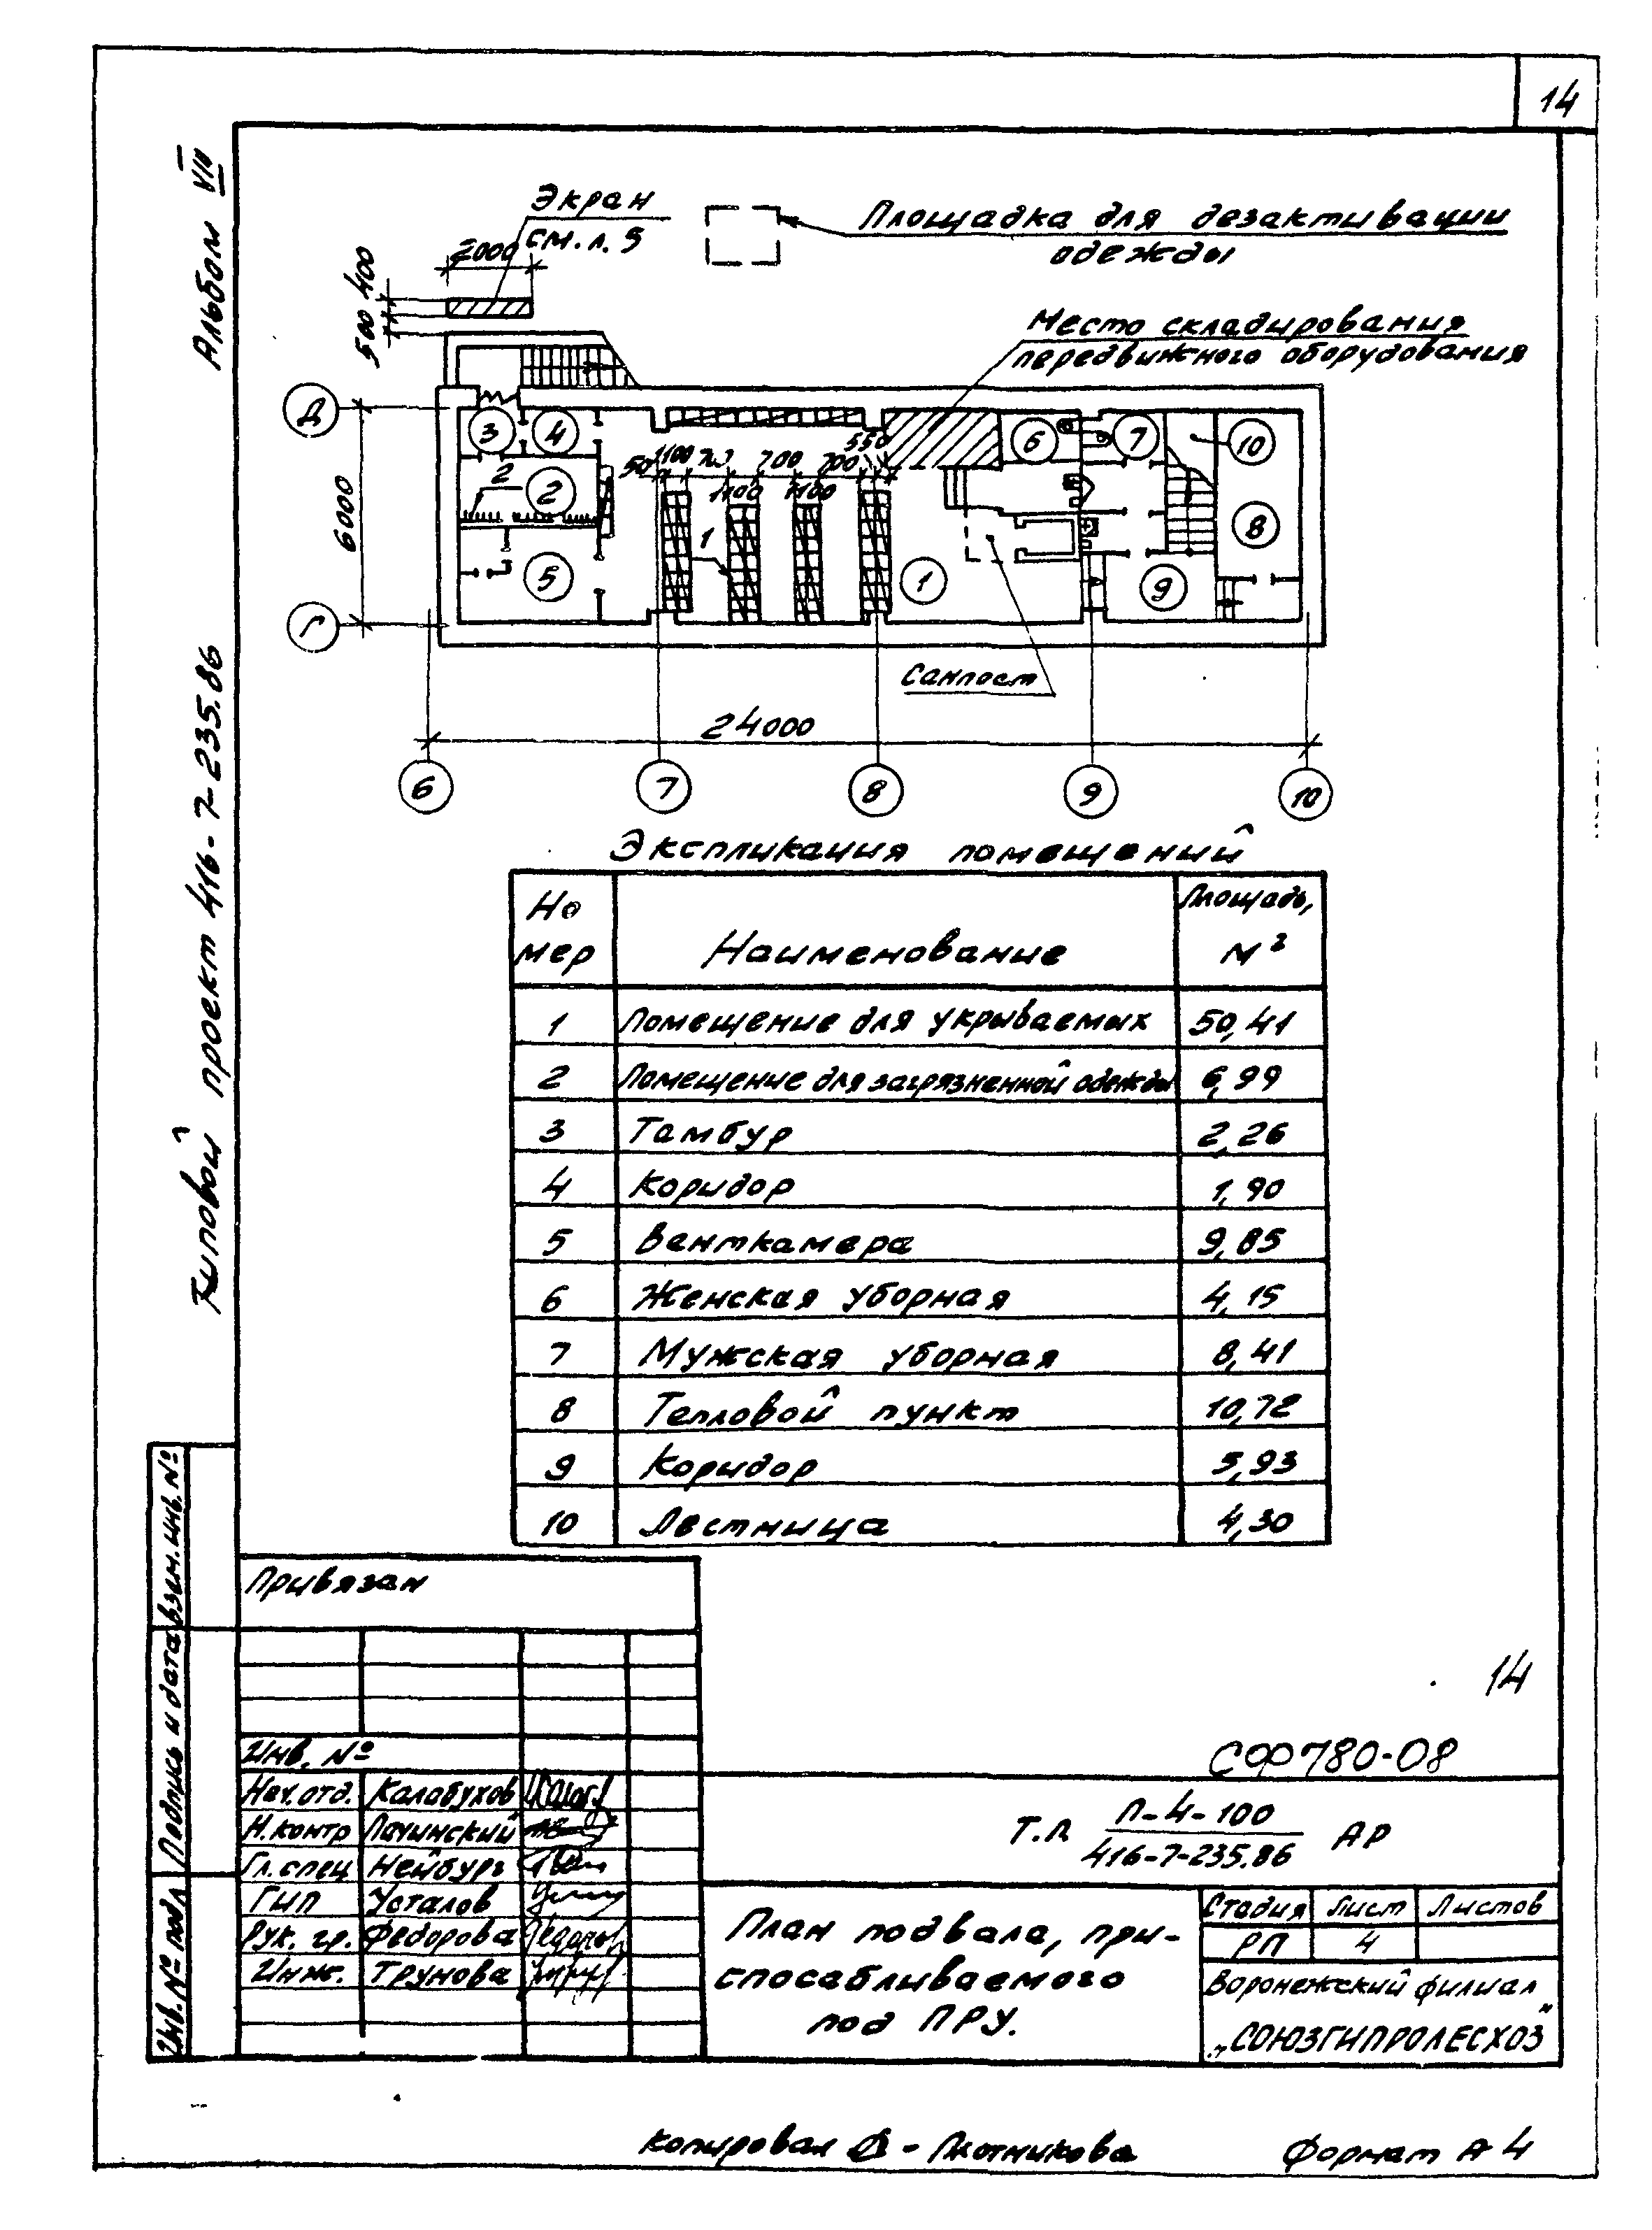 14
Альбом VIII
Типовой проект 416-7-235.86
Экран
см. л. 5
2000
400
500
Площадка для дезактивации
одежды
Место складирования
передвижного оборудования
Д
Г
6000
3
4
2
2
5
50
1100
700
700
700
550
1100
1100
1
1
6
7
10
8
9
Санпост
24000
6
7
8
9
10
Экспликация помещений
Но
мер
Наименование
Площадь,
м²
1 Помещение для укрываемых 50,41
2 Помещение для загрязненной одежды 6,99
3 Тамбур 2,26
4 Коридор 1,90
5 Венткамера 9,85
6 Женская уборная 4,15
7 Мужская уборная 8,41
8 Тепловой пункт 10,72
9 Коридор 5,93
10 Лестница 4,30
Привязан
Инв. №
Нач. отд. Калабухов
Н. контр Пачинский
Гл. спец Нейбург
ГИП Усталов
Рук. гр. Федорова
Инж. Трунова
Взам. инв. №
Подпись и дата
Инв. № подл
14
СФ780-08
Т.П П-4-100
416-7-235.86 АР
План подвала, при-
спосабливаемого
под ПРУ.
Стадия Лист Листов
РП 4
Воронежский филиал
„СОЮЗГИПРОЛЕСХОЗ"
Копировал - Плотникова
Формат А4